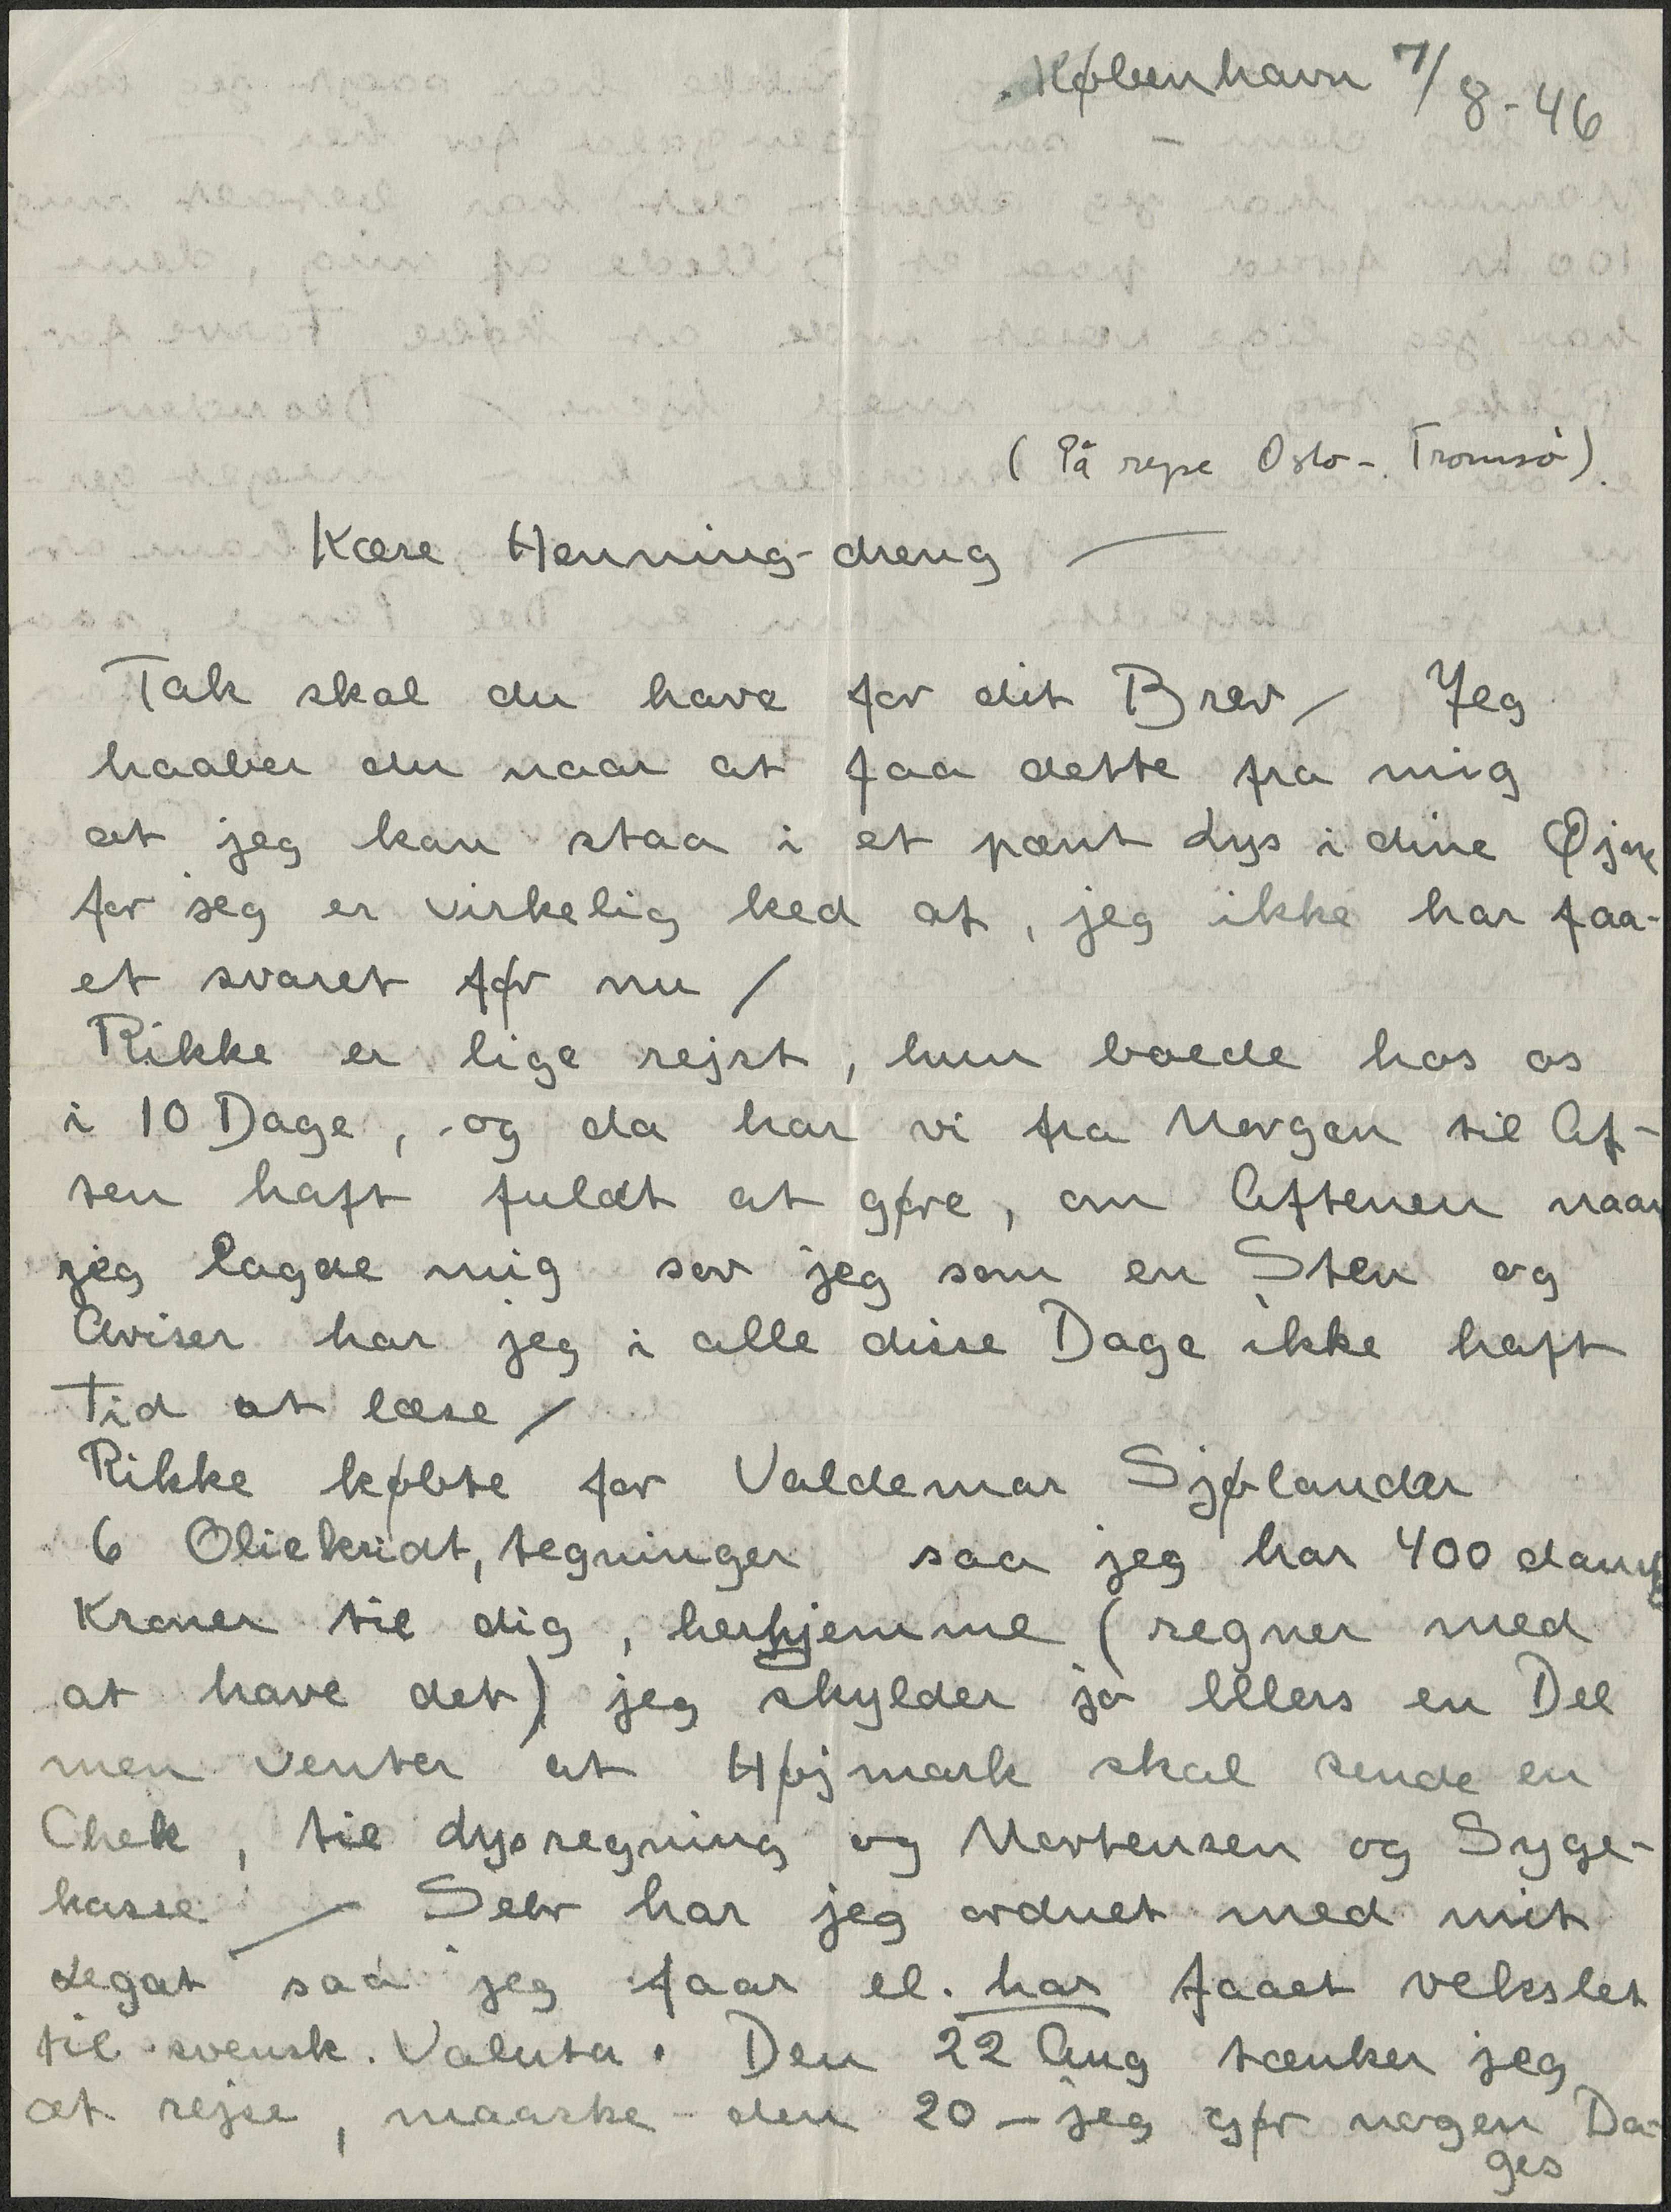 København 7/8-46
(På rejse Oslo-Tromsö).
Kære Henning-dreng —
Tak skal du have for dit Brev / Jeg
haaber du naar at faa dette fra mig
at jeg kan staa i et pænt Lys i dine Øjne
for jeg er virkelig ked af, jeg ikke har faa-
et svaret før nu /
Rikke er lige rejst, hun boede hos os
i 10 Dage, og da har vi fra Morgen til Af-
ten haft fuldt at gøre, om Aftenen naar
jeg lagde mig sov jeg som en Sten og
Aviser har jeg i alle disse Dage ikke haft
Tid at læse /
Rikke købte for Valdemar Sjølander
6 Oliekridt, tegninger saa jeg har 400 danske
Kroner til dig, herhjemme (regner med
at have det) jeg skylder jo Ellers en Del
men venter at Højmark skal sende en
Chek, til Lysregning og Mortensen og Syge-
kasse / Selv har jeg ordnet med mit
Legat saa jeg faar el. har faaet vekslet
til svensk. Valuta. Den 22 Aug tænker jeg
at rejse, maaske den 20 — jeg gør nogen Da-
ges